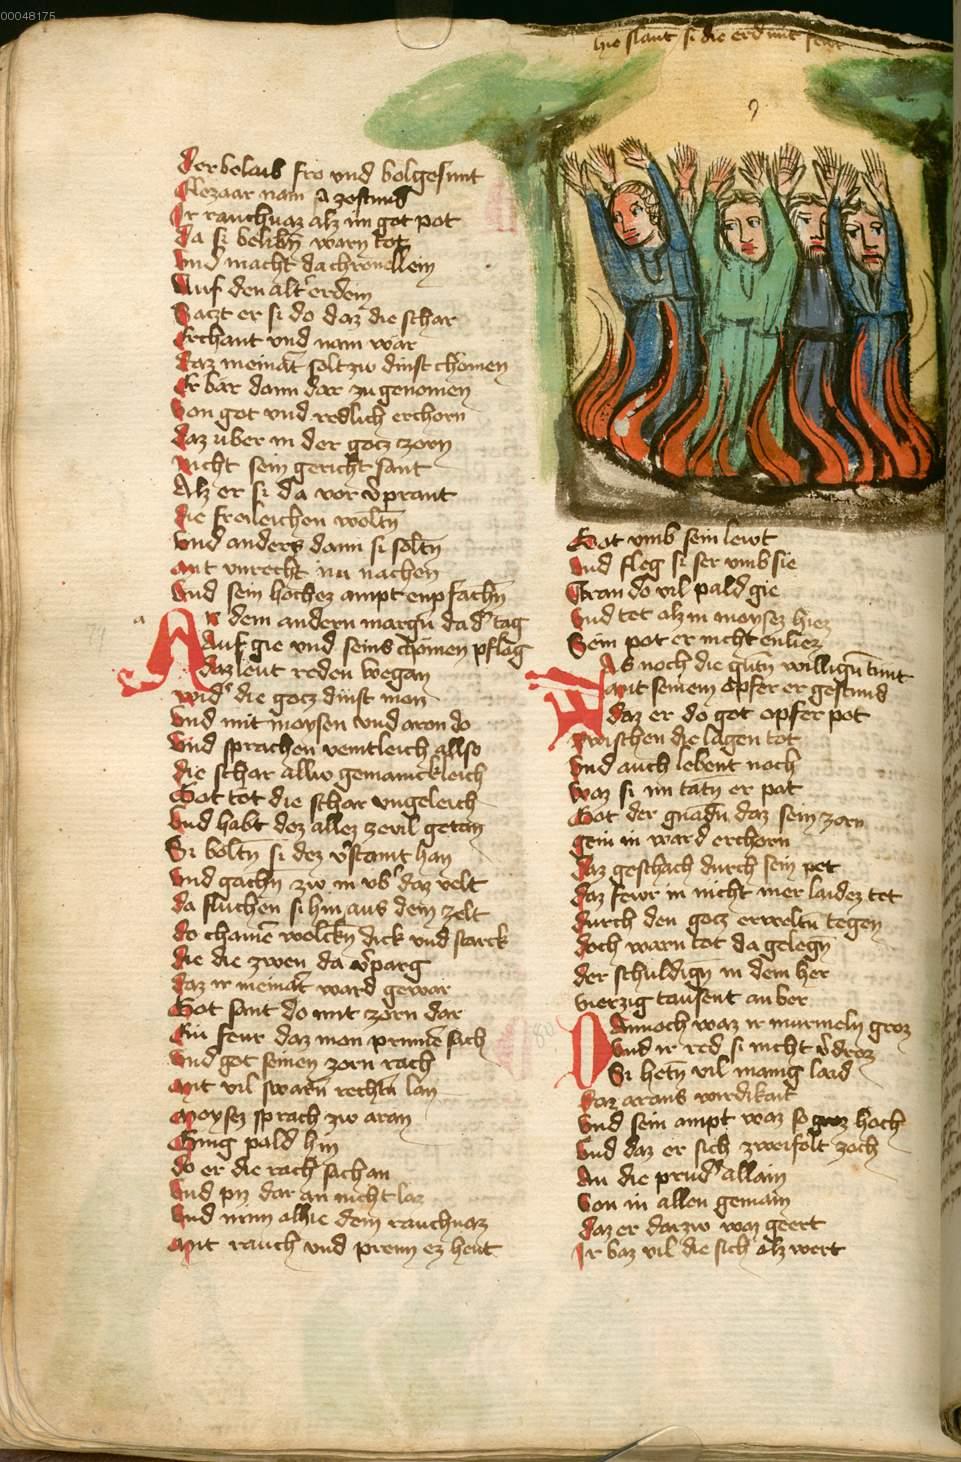 00048175
hie slant si die erd mit fewr
der belaib fro vnd volgesunt
Elezaar nam zestund
Ir rauchuaz alz im got pot
da si belibn warn tot
vnd macht da chronellein
Auf den alt erdein
Saczt er si do daz die schar
Erchant vnd nam war
daz meinat solt zw dinst chomen
Er bar dann dar zu genomen
von got vnd redlich erchorn
daz vber in der gocz zorn
nicht sein gericht sant
Alz er si da vor v̄prant
die freileichen woltn̄
vnd anders dann si soltn̄
mit vnrecht im nachen
vnd sein hochez ampt enpfachn̄
An dem andern margn̄ da d' tag
Auf gie vnd seins chomen pflag
daz leut reden began
wid' die gocz dinst man
vnd mit moysen vnd aron do
vnd sprachen veintleich allso
die schar allw gemainckleich
Got tot die schar vngeleich
vnd habt dez allez zevil getan
Si woltn̄ si dez v̄staint han
vnd gachn̄ zw in vb' daz velt
da fluchen si hin aus dem zelt
do chamē wolckn̄ dick vnd starck
die die zwen da v̄parg
daz ir meinat' ward gewar
Got sant do mit zorn dar
Ein feur daz man prinnē sach
vnd got seinen zorn rach
mit vil swarn̄ rechtn̄ lan
moysez sprach zw aran
Ging pald hin
do er die rach sach an
vnd piz dar an nicht laz
vnd nim alhie dein rauchuaz
mit rauch vnd prenn ez heut
Got vmb sein lewt
vnd fleg si ser vmb sie
Aran do vil pald gie
vnd tet alz in moysez hiez
Sein pot er nicht enliez
Als noch die gutn̄ willign̄ tunt
mit seinem opfer er gestund
daz er do got opfer pot
zwischen die lagen tot
vnd auch lebent noch
waz si im tatn er pat
Got der gnadn̄ daz sein zorn
gein in ward erchorn
daz geschach durch sein pet
daz fewr in nicht mer laidez tet
durch den gocz erweltn̄ tegen
doch warn tot da gelegn̄
der schuldign̄ in dem her
vierzig tausent an wer
Dannoch waz ir murmeln groz
vnd ir red si nicht v̄droz
Si hetn̄ vil manig laid
daz arans wirdikait
vnd sein ampt waz so groz hoch
vnd daz er sich zweifolt zoch
An die prud' allain
von in allen gemain
daz er darzw waz geert
Ir baz vil die sich alz wert